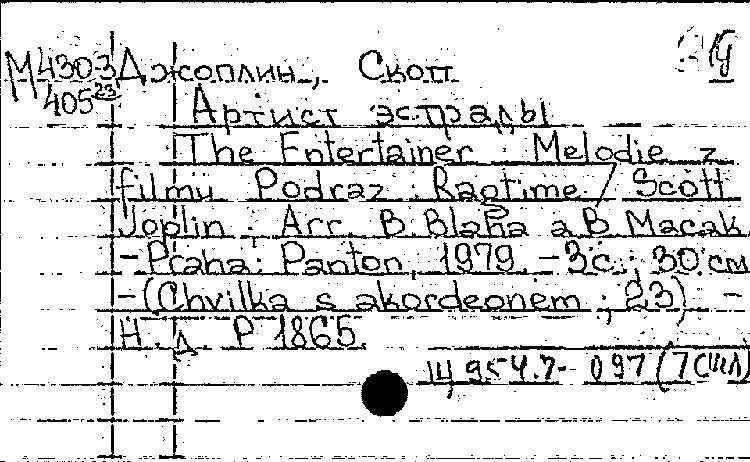 М 4303 Джоплин, Скотт
405 23
Артист эстрады
The Entertainer : Melodie z
filmu Podraz : Ragtime / Scott
Joplin ; Arr. B. Blaha a B. Macak.
- Praha : Panton, 1979. - 3 с. ; 30 см
- (Chvilka s akordeonem ; 23) -
Н. д. P 1865.
Щ 954.7- 097 (7США)